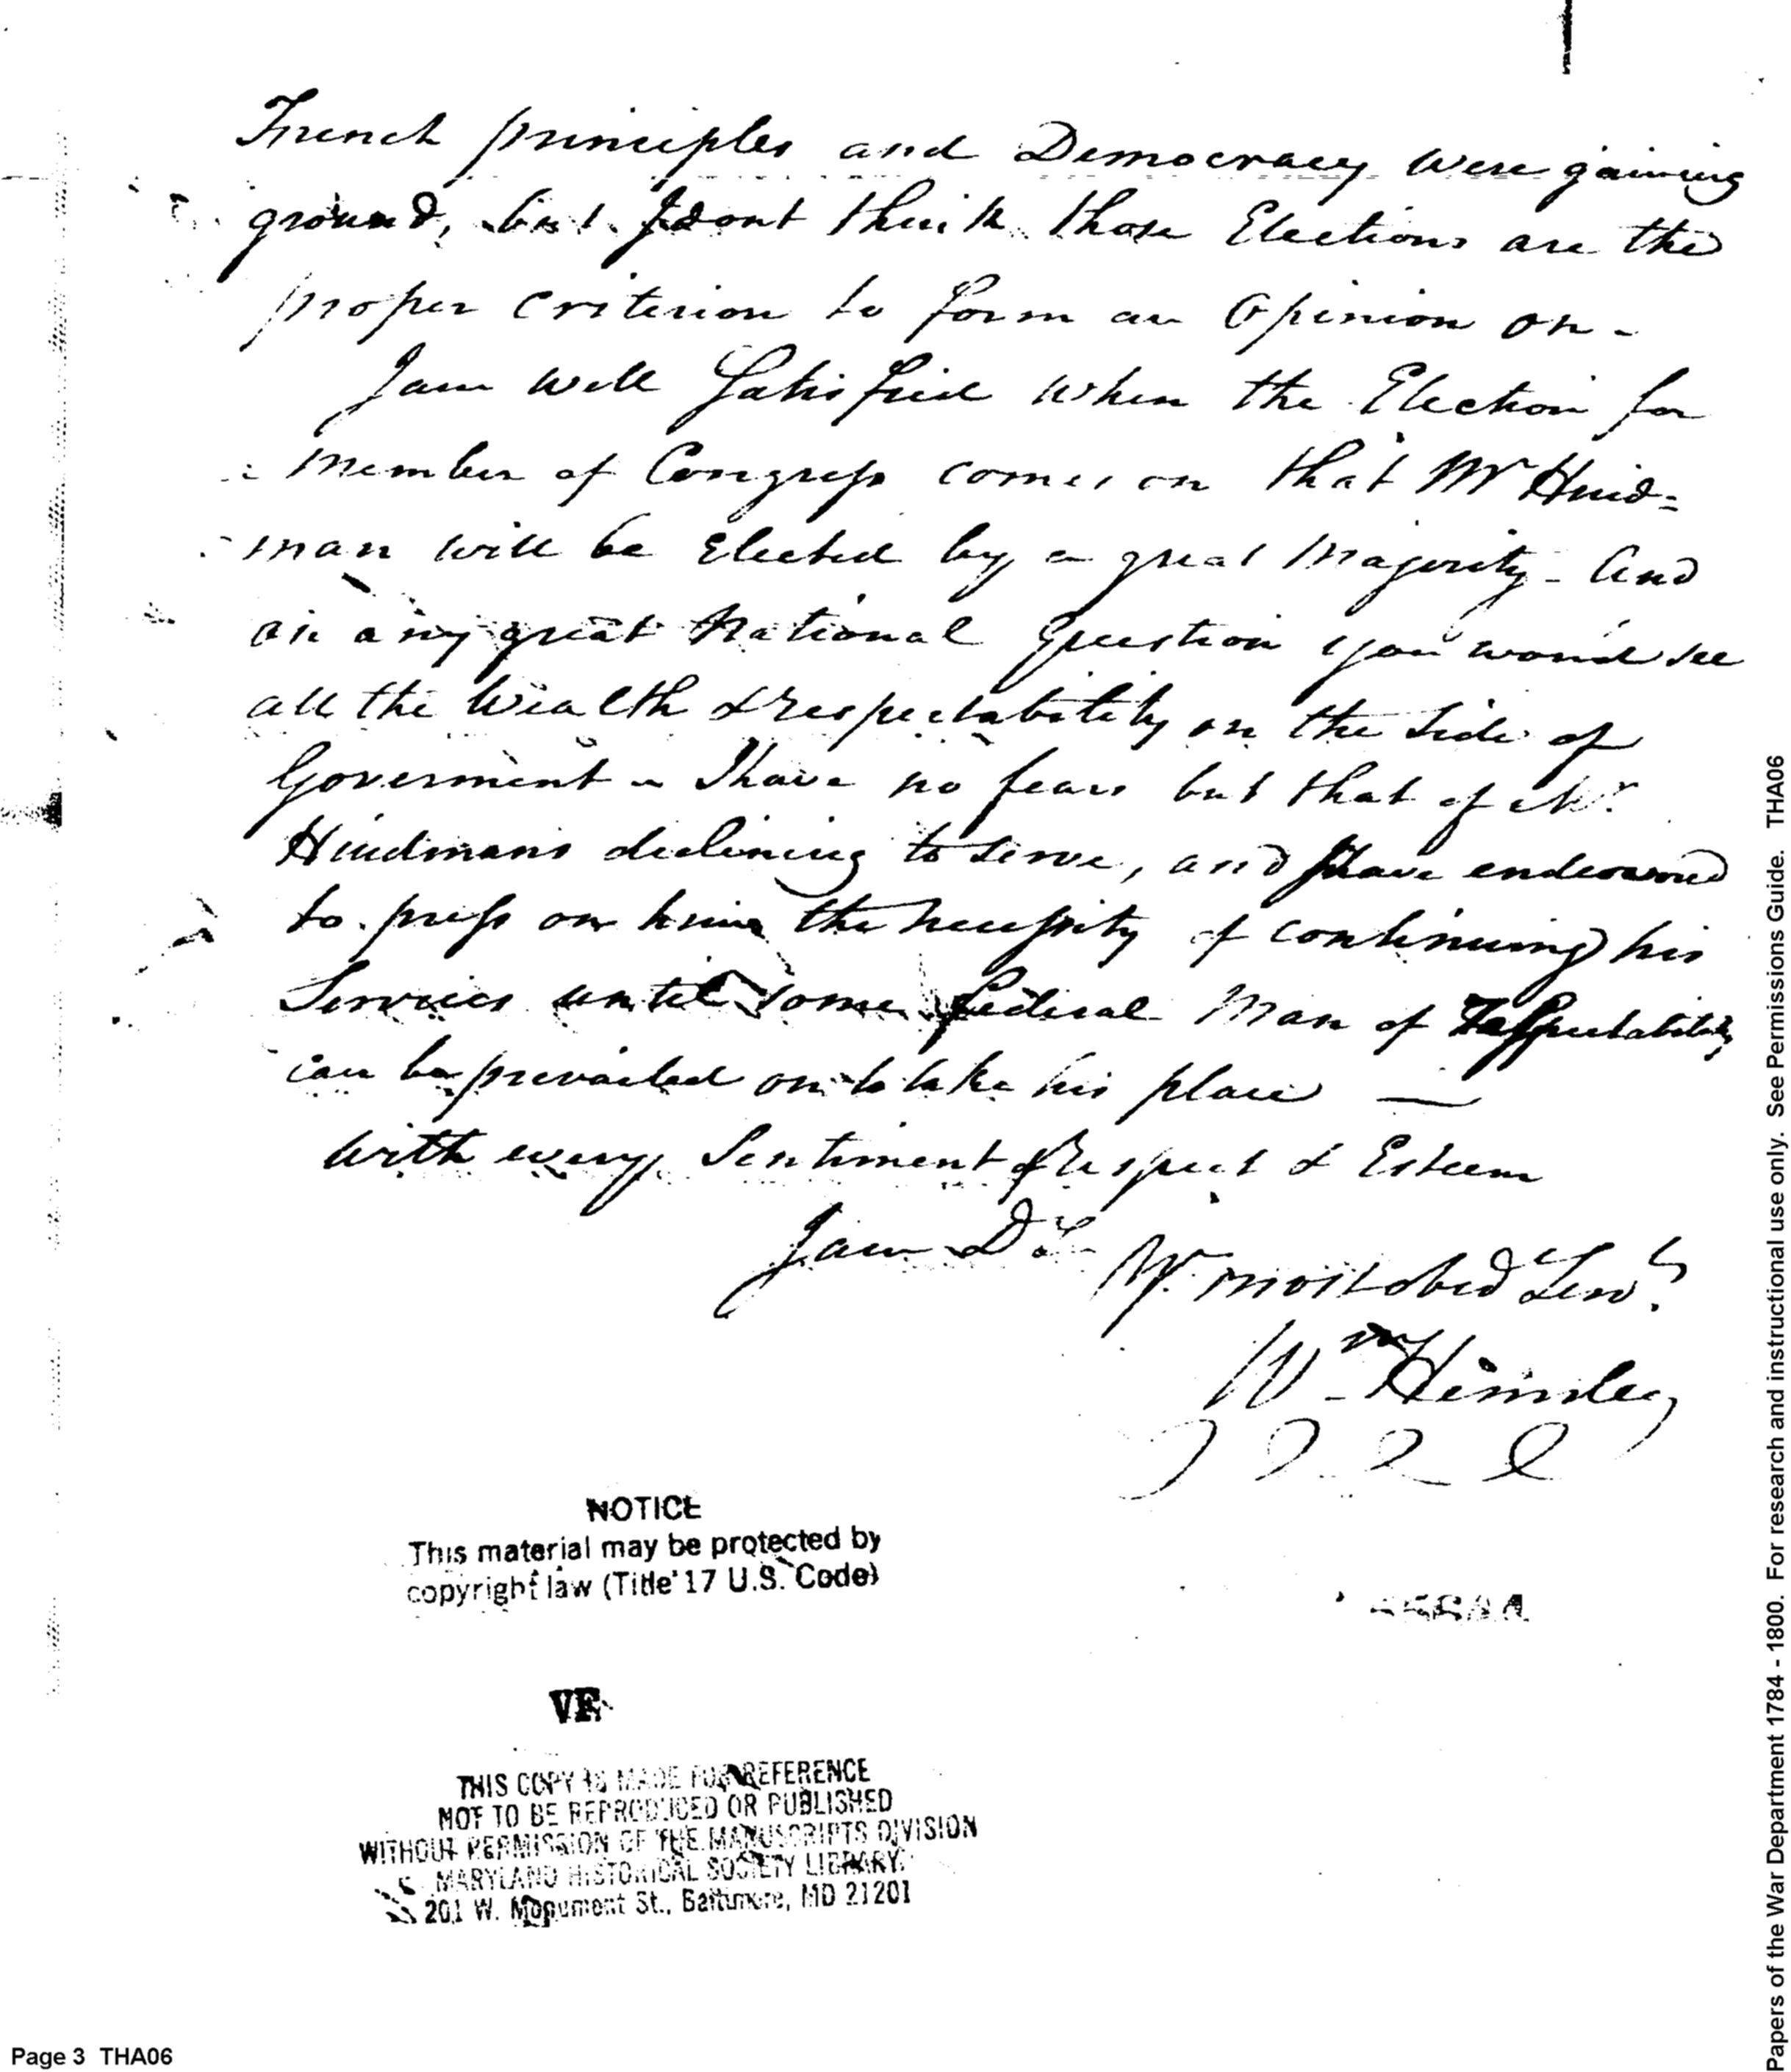 French principles and Democracy were gaining
ground, but I dont think those Elections are the
proper criterion to form an Opinion on -
I am well Satisfied when the Election for
Member of Congress comes on that Mr Hind=
man will be Elected by a great Majority - And
on any great National Question you woud see
all the Wealth & respectability on the Side of
Goverment - I have no fears but that of Mr.
Hindmans declining to serve, and I have endeavored
to press on him the necessity of continuing his
Services until some federal Man of Respectability
can be prevailed on to take his place —
With every Sentiment of Respect & Esteem
I am D Sr
Yr. most obed Serv.t
Wm Hemsley
NOTICE
This material may be protected by
copyright law (Title 17 U.S. Code)
VF
THIS COPY IS MADE FOR REFERENCE
NOT TO BE REPRODUCED OR PUBLISHED
WITHOUT PERMISSION OF THE MANUSCRIPTS DIVISION
MARYLAND HISTORICAL SOCIETY LIBRARY.
201 W. Monument St., Baltimore, MD 21201
Page 3 THA06
Papers of the War Department 1784 - 1800. For research and instructional use only. See Permissions Guide. THA06